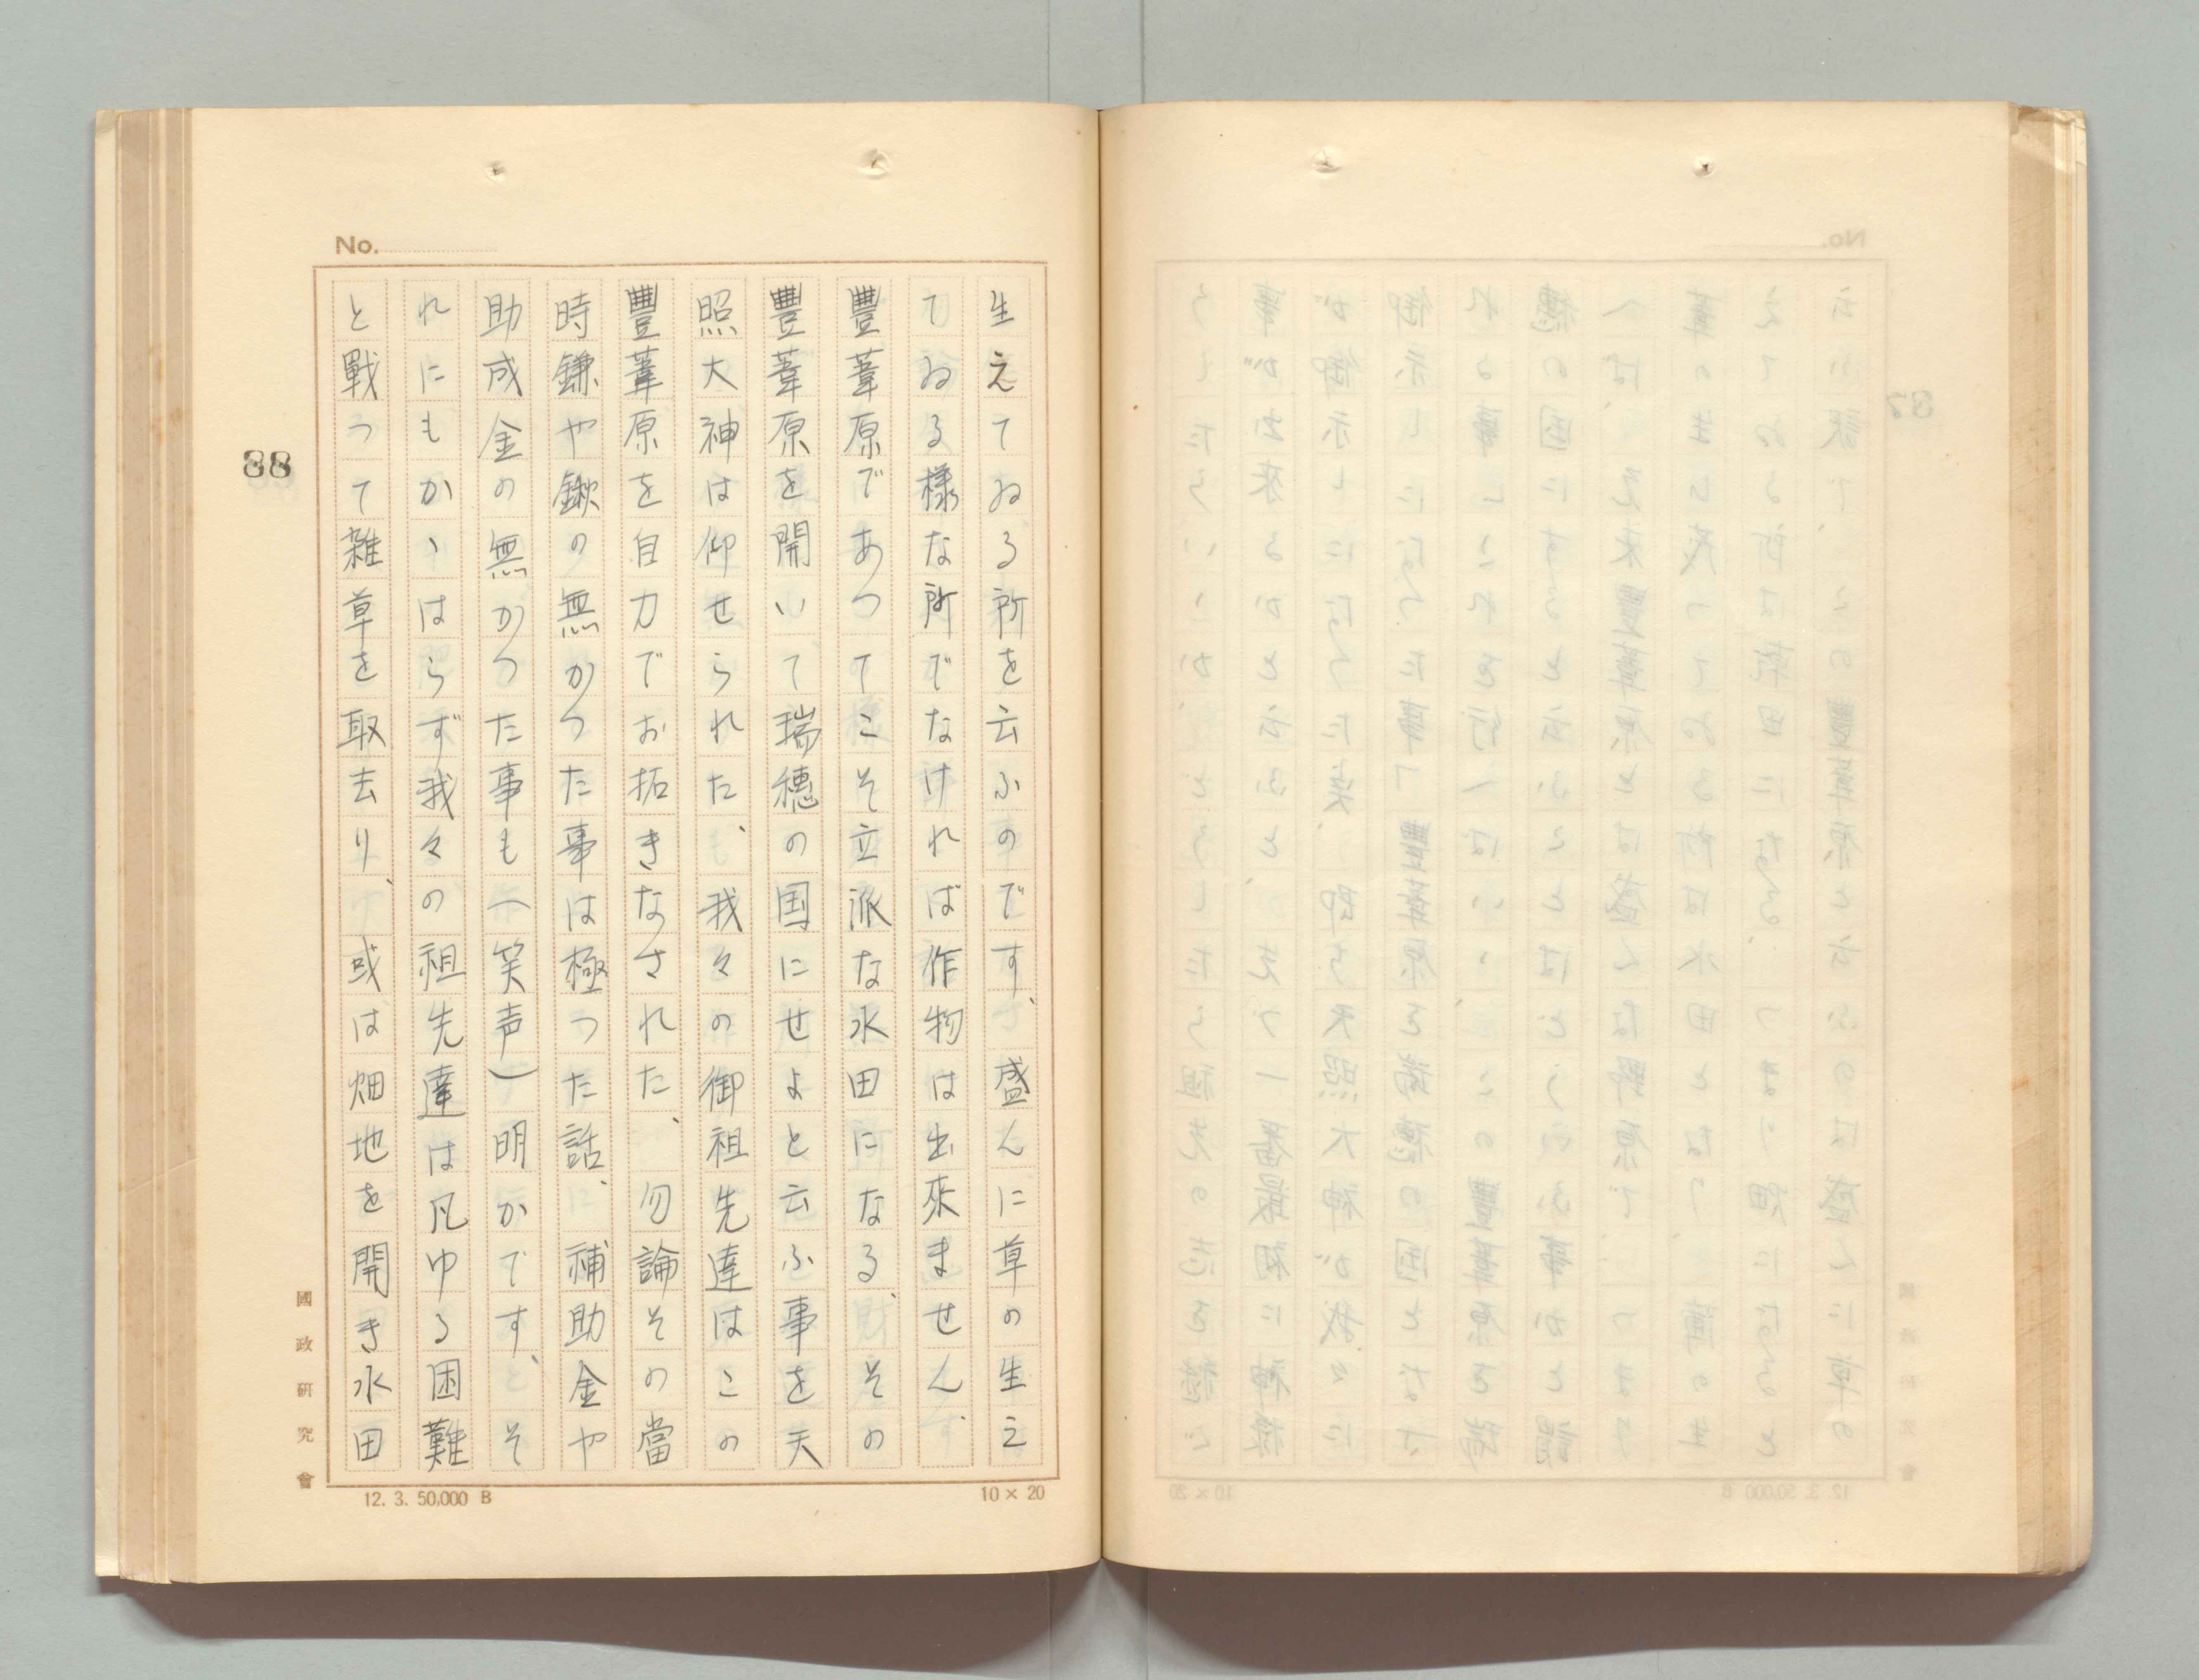 No.
生えてゐる所を云ふのです、盛んに草の生え
てゐる様な所でなければ作物は出來ません、
豊葦原であつてこそ立派な水田になる、その
豊葦原を開いて瑞穂の国にせよと云ふ事を天
照大神は仰せられた、我々の御祖先達はこの
豊葦原を自力でお拓きなされた、勿論その當
時鎌や鍬の無かつた事は極つた話、補助金や
助成金の無かつた事も(笑声)明かです、そ
れにもかゝはらず我々の祖先達は凡ゆる困難
と戰つて雑草を取去り、或は畑地を開き水田
88
國政研究會
12. 3. 50,000 B
10×20